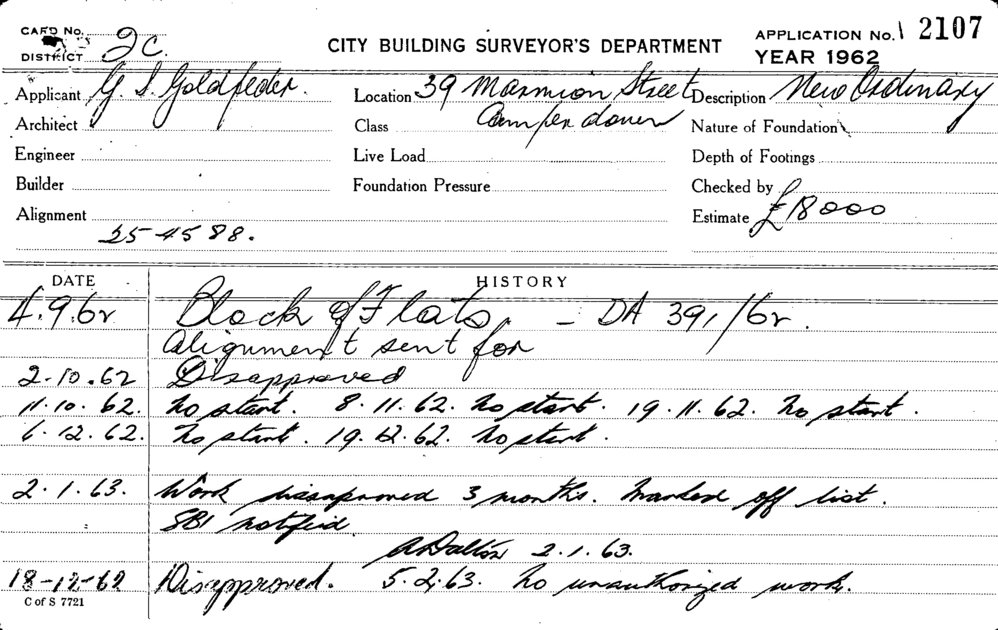 CARD No.
DISTRICT 2c.
CITY BUILDING SURVEYOR'S DEPARTMENT
APPLICATION No. 2107
YEAR 1962
Applicant G. S. Goldfeder. Location 39 Marmion Street Description New Ordinary
Architect Class Camperdown Nature of Foundation
Engineer Live Load Depth of Footings
Builder Foundation Pressure Checked by
Alignment Estimate £18000
25-4588.
DATE HISTORY
4.9.62 Block of Flats. - DA 391/62.
Alignment sent for
2-10.62 Disapproved
11.10.62. No start. 8.11.62. No start. 19.11.62. No start.
6.12.62. No start. 19.12.62. No start.
2.1.63. Work disapproved 3 months. Marked off list.
SBI notified
A Dalton 2.1.63.
18-12-62 Disapproved. 5.2.63. No unauthorized work.
C of S 7721